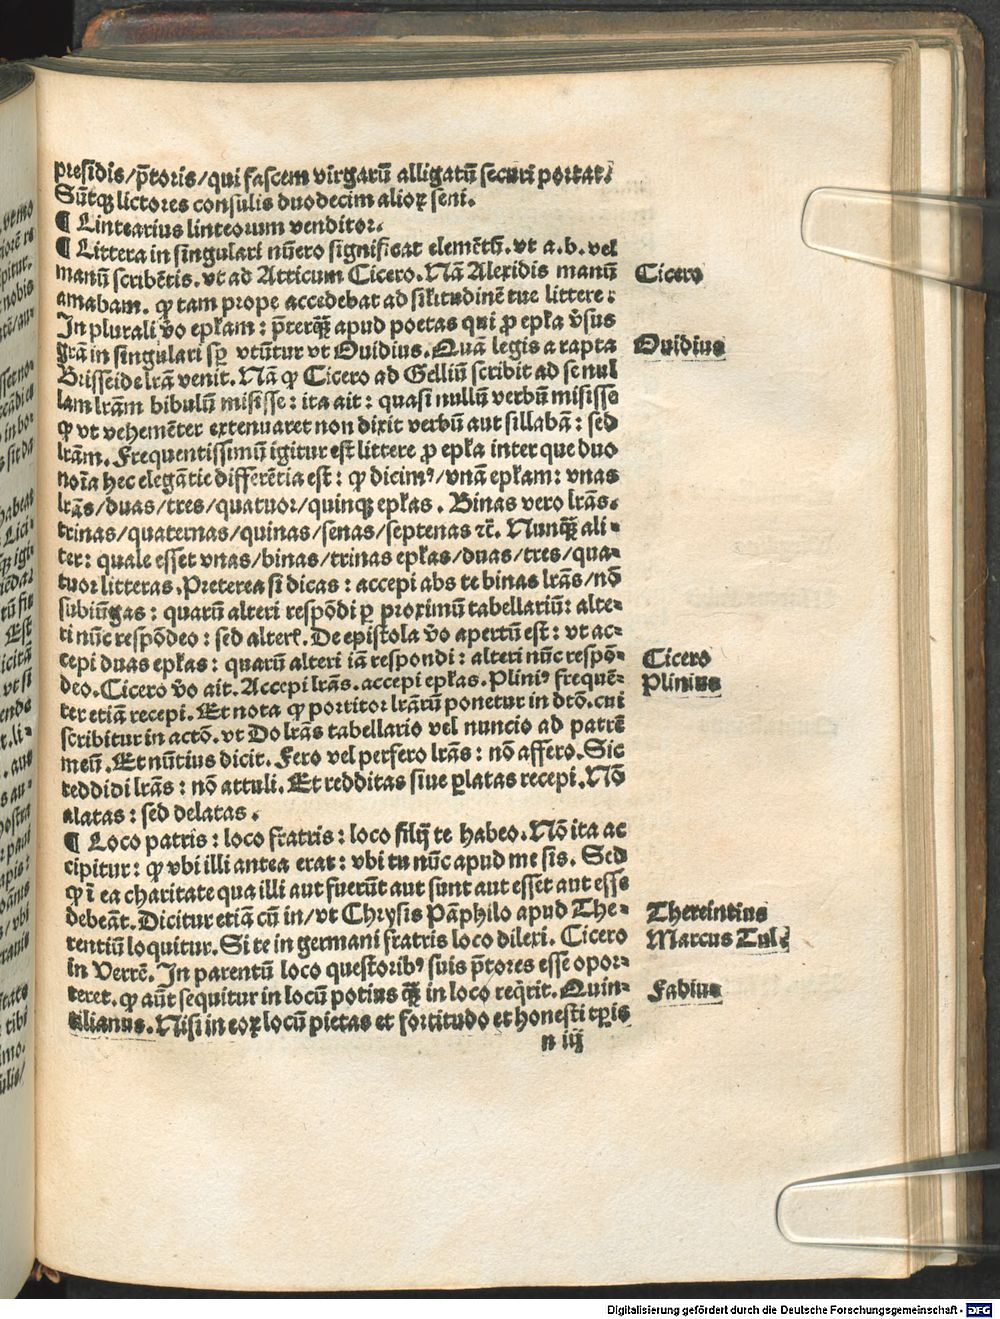 presidis/p̄toris/qui fascem virgarū alligatū securi portat.
Sūtqꝫ lictores consulis duodecim alioꝝ seni.
¶ Lintearius linteorum venditor.
¶ Littera in singulari nūero significat elemētū. vt a.b. vel
manū scribētis. vt ad Atticum Cicero. Nā Alexidis manū
amabam. ꝙ tam prope accedebat ad sīłitudinē tue littere:
In plurali v̄o epłam: p̄terqꝫ̄ apud poetas qui ꝓ epła v̄sus
lr̄am in singulari sꝑ vtūtur vt Ouidius. Quā legis a rapta
Brisseide lr̄am venit. Nā ꝙ Cicero ad Gelliū scribit ad se nul
lam lr̄am bibulū misisse: ita ait: quasi nullū verbū misisse
ꝙ vt vehemēter extenuaret non dixit verbū aut sillabā: sed
lr̄am. Frequentissimū igitur est littere ꝓ epła inter que duo
noīa hec elegātie differētia est: ꝙ dicimꝰ/vnā epłam: vnas
lr̄as/duas/tres/quatuor/quinqꝫ epłas. Binas vero lr̄as.
trinas/quaternas/quinas/senas/septenas ⁊c̄. Nunqꝫ̄ ali-
ter: quale esset vnas/binas/trinas epłas/duas/tres/qua-
tuor litteras. Preterea si dicas: accepi abs te binas lr̄as/nō
subiūgas: quarū alteri respōdi ꝑ proximū tabellariū: alte-
ri nūc respōdeo: sed alterī. De epistola v̄o apertū est: vt ac-
cepi duas epłas: quarū alteri iā respondi: alteri nūc respō-
deo. Cicero v̄o ait. Accepi lr̄as. accepi epłas. Pliniꝰ frequē-
ter etiā recepi. Et nota ꝙ portitor lr̄arū ponetur in dtō. cui
scribitur in actō. vt Do lr̄as tabellario vel nuncio ad patrē
meū. Et nūtius dicit. Fero vel perfero lr̄as: nō affero. Sic
reddidi lr̄as: nō attuli. Et redditas siue ꝑlatas recepi. Nō
alatas: sed delatas.
¶ Loco patris: loco fratris: loco filij te habeo. Nō ita ac
cipitur: ꝙ vbi illi antea erat: vbi tu nūc apud me sis. Sed
ꝙ ī ea charitate qua illi aut fuerūt aut sunt aut esset aut esse
debeāt. Dicitur etiā cū in/vt Chrysis Pāphilo apud The-
rentiū loquitur. Si te in germani fratris loco dilexi. Cicero
in Verrē. In parentū loco questoribꝰ suis p̄tores esse opor-
teret. ꝙ aūt sequitur in locū potius qꝫ̄ in loco reqͥrit. Quin-
tilianus. Nisi in eoꝝ locū pietas et fortitudo et honesti tꝑis
n iij
Cicero
Ouidius
Cicero
Plinius
Thereintius
Marcus Tul.
Fabius
Digitalisierung gefördert durch die Deutsche Forschungsgemeinschaft - DFG